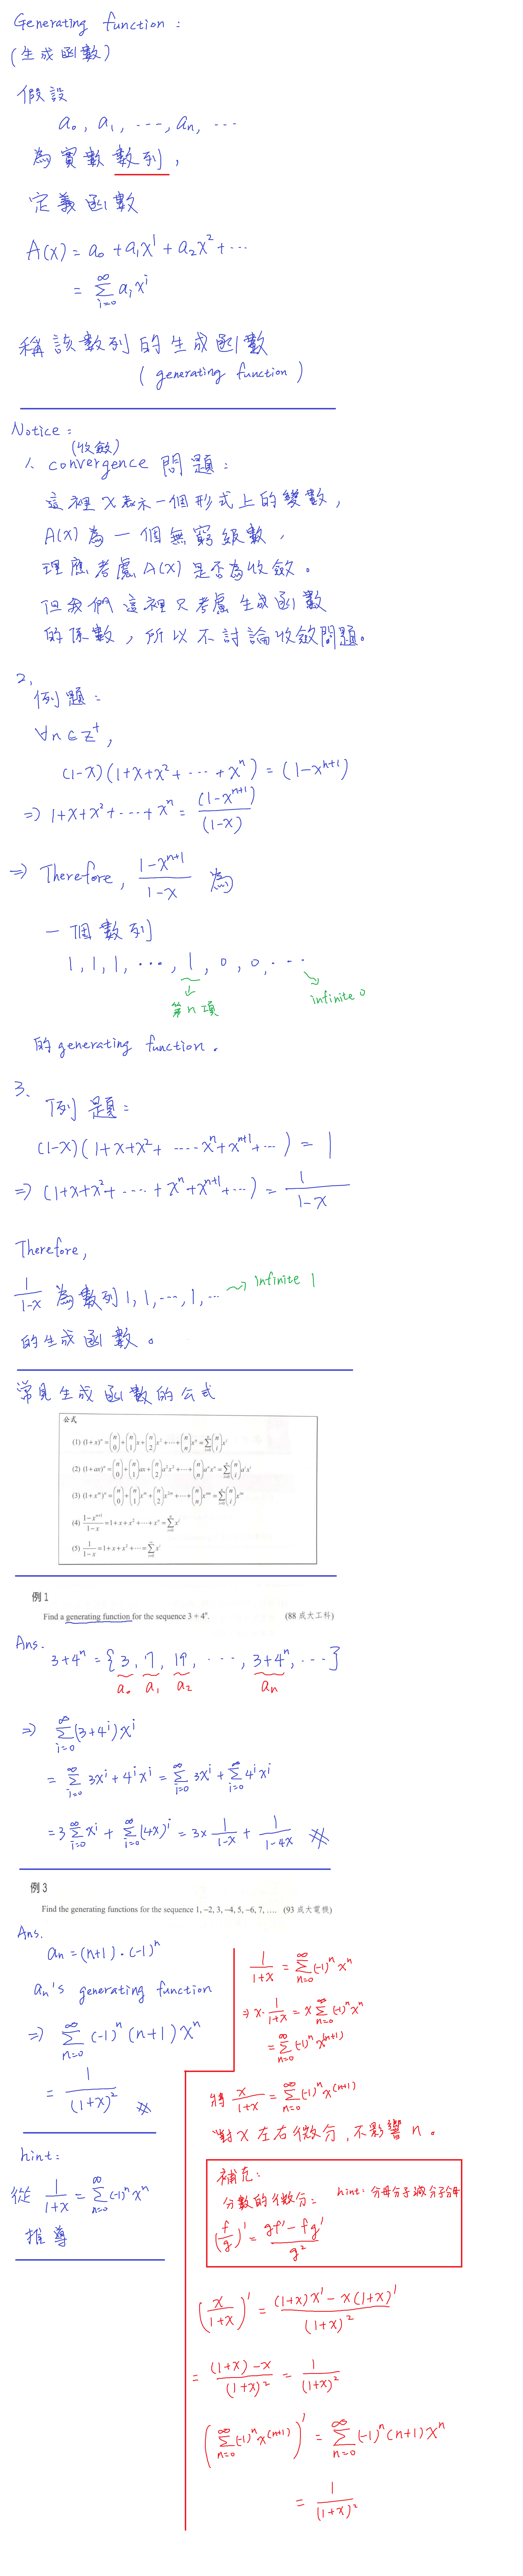 Generating function :
(生成函數)
假設
a₀, a₁, ---, aₙ, ...
為實數數列,
定義函數
A(x) = a₀ + a₁x¹ + a₂x² + ...
= ∑_{i=0}^{∞} aᵢxⁱ
稱該數列的生成函數
( generating function )
Notice :
(收斂)
1. convergence 問題 :
這裡 x 表示一個形式上的變數,
A(x) 為一個無窮級數,
理應考慮 A(x) 是否為收斂。
但我們這裡只考慮生成函數
的係數, 所以不討論收斂問題。
2.
例題 :
∀n ∈ Z⁺,
(1-x)(1+x+x²+ ... +xⁿ) = (1-xⁿ⁺¹)
=> 1+x+x²+ ... +xⁿ = (1-xⁿ⁺¹)/(1-x)
=> Therefore, (1-xⁿ⁺¹)/(1-x) 為
一個數列
1, 1, 1, ..., 1, 0, 0, ...
第 n 項
infinite 0
的 generating function.
3.
例題 :
(1-x)(1+x+x²+ ....xⁿ+xⁿ⁺¹+...) = 1
=> (1+x+x²+ .... +xⁿ+xⁿ⁺¹+...) = 1/(1-x)
Therefore,
1/(1-x) 為數列 1, 1, ---, 1, ... infinite 1
的生成函數。
常見生成函數的公式
公式
(1) (1+x)ⁿ = (n 0) + (n 1)x + (n 2)x² + ⋯ + (n n)xⁿ = ∑_{i=0}^{n} (n i)xⁱ
(2) (1+ax)ⁿ = (n 0) + (n 1)ax + (n 2)a²x² + ⋯ + (n n)aⁿxⁿ = ∑_{i=0}^{n} (n i)aⁱxⁱ
(3) (1+xᵐ)ⁿ = (n 0) + (n 1)xᵐ + (n 2)x²ᵐ + ⋯ + (n n)xⁿᵐ = ∑_{i=0}^{n} (n i)xⁱᵐ
(4) (1-xⁿ⁺¹)/(1-x) = 1+x+x²+⋯+xⁿ = ∑_{i=0}^{n} xⁱ
(5) 1/(1-x) = 1+x+x²+⋯ = ∑_{i=0}^{∞} xⁱ
例 1
Find a generating function for the sequence 3 + 4ⁿ. (88 成大工科)
Ans.
3+4ⁿ = {3, 7, 19, ..., 3+4ⁿ, ...}
a₀ a₁ a₂ aₙ
=> ∑_{i=0}^{∞} (3+4ⁱ)xⁱ
= ∑_{i=0}^{∞} 3xⁱ + 4ⁱxⁱ = ∑_{i=0}^{∞} 3xⁱ + ∑_{i=0}^{∞} 4ⁱxⁱ
= 3∑_{i=0}^{∞} xⁱ + ∑_{i=0}^{∞} (4x)ⁱ = 3 × 1/(1-x) + 1/(1-4x) #
例 3
Find the generating functions for the sequence 1, −2, 3, −4, 5, −6, 7, .... (93 成大電機)
Ans.
aₙ = (n+1)·(-1)ⁿ
aₙ's generating function
=> ∑_{n=0}^{∞} (-1)ⁿ(n+1)xⁿ
= 1/(1+x)² #
hint:
從 1/(1+x) = ∑_{n=0}^{∞} (-1)ⁿxⁿ
推導
1/(1+x) = ∑_{n=0}^{∞} (-1)ⁿxⁿ
=> x·1/(1+x) = x∑_{n=0}^{∞} (-1)ⁿxⁿ
= ∑_{n=0}^{∞} (-1)ⁿx⁽ⁿ⁺¹⁾
將 x/(1+x) = ∑_{n=0}^{∞} (-1)ⁿx⁽ⁿ⁺¹⁾
對 x 左右微分, 不影響 n。
補充:
分數的微分: hint: 分母分子減分子分母
(f/g)' = (gf' - fg')/g²
(x/(1+x))' = ((1+x)x' - x(1+x)')/(1+x)²
= ((1+x)-x)/(1+x)² = 1/(1+x)²
(∑_{n=0}^{∞} (-1)ⁿx⁽ⁿ⁺¹⁾)' = ∑_{n=0}^{∞} (-1)ⁿ(n+1)xⁿ
= 1/(1+x)²